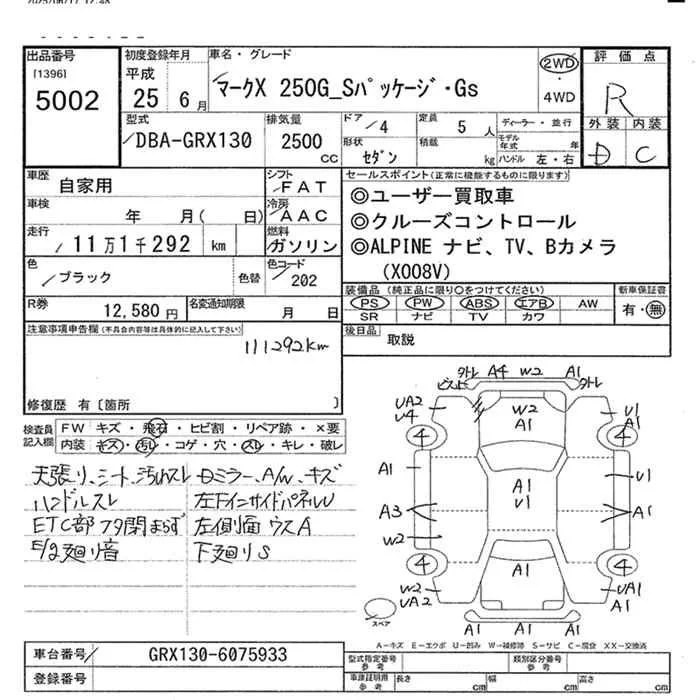 2025/06/17 12:48
出品番号
[1396]
5002
初度登録年月
平成
25 6月
車名・グレード
マークX 250G_Sパッケージ・Gs
2WD
・
4WD
評価点
R
型式
DBA-GRX130
排気量
2500
CC
ドア
4
定員
5 人
形状
セダン
積載
kg
ディーラー・並行
モデル年式 年
ハンドル 左・右
外装 内装
D C
車歴
自家用
シフト
FAT
車検
年 月( 日)
冷房
AAC
走行
11万1千292 km
燃料
ガソリン
色
ブラック
色替
色コード
202
R券
12,580円
名変通知期限
月 日
セールスポイント(正常に機能するものに限ります)
◎ユーザー買取車
◎クルーズコントロール
◎ALPINE ナビ、TV、Bカメラ
(X008V)
装備品 (純正品に限り○をつけてください)
PS PW ABS エアB AW
SR ナビ TV カワ
新車保証書
有・無
後日品
取説
注意事項申告欄(不具合内容等は具体的に記入して下さい)
111292km
修復歴 有〔箇所 〕
検査員
記入欄
FW キズ・飛石・ヒビ割・リペア跡・×要
内装 キズ・汚れ・コゲ・穴・スレ・キレ・破レ
天張り、シート、汚れスレ
ハンドルスレ
ETC部フタ閉まらず
E/g廻り音
Dミラー、A/W、キズ
左下インサイドパネルU
左側面 ウスA
下廻りS
外トレ A4 W2 A1
外トレ
UA2
U4
W2
A1
U1
A1
4 4
A1
A1
U1
U1
A3
A1
W2
4 4
A1
W2
UA2
UA1
A1
A1 A1
スペア
A-キズ E-エクボ U-凹み W-補修跡 S-サビ C-腐食 XX-交換済
車台番号
GRX130-6075933
登録番号
型式指定番号
参考
類別区分番号
参考
車庫証明用
参考
長さ cm
幅 cm
高さ cm